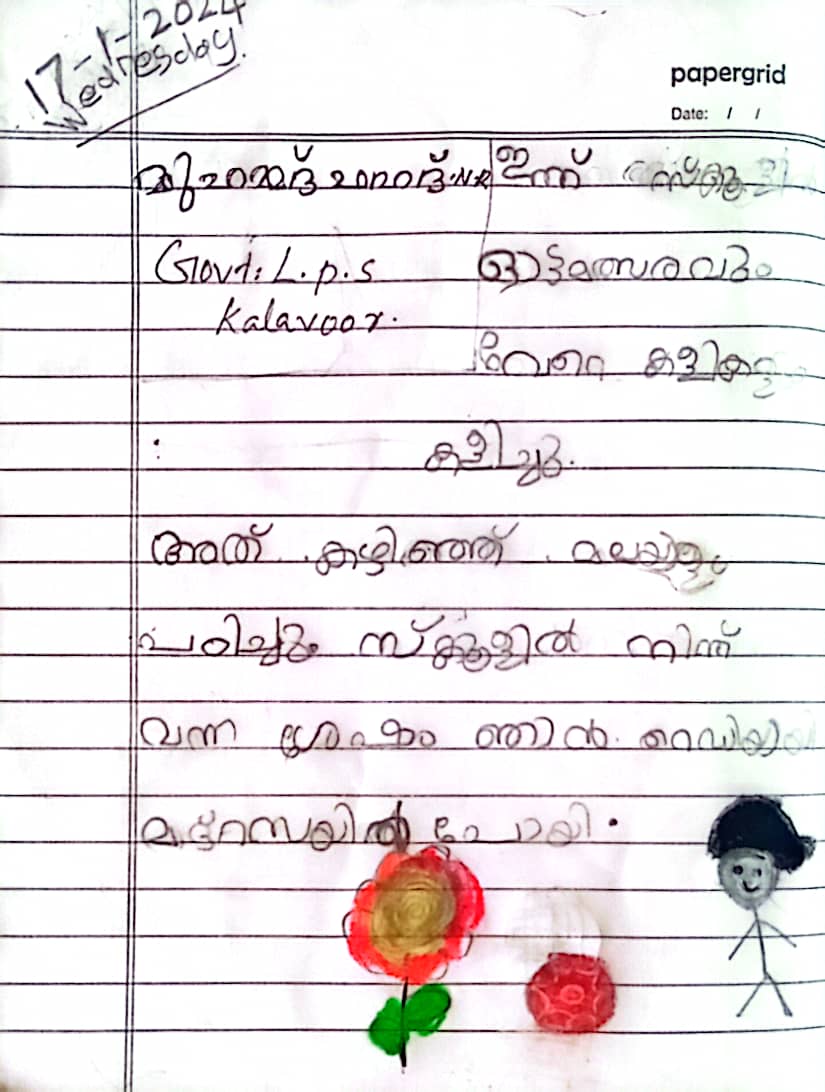 17-1-2024
Wednesday.
papergrid
Date: / /
മുഹമ്മദ് ഹമദ്.N.R ഇന്ന് സ്കൂളിൽ
Govt: L.p.s ഓട്ടമത്സരവും
Kalavoor. വേറെ കളികളും
കളിച്ചു.
അത് കഴിഞ്ഞ് മലയാളം
പഠിച്ചും സ്ക്കൂളിൽ നിന്ന്
വന്ന ശേഷം ഞാൻ റെഡിയായി
മദ്റസയിൽ പോയി.